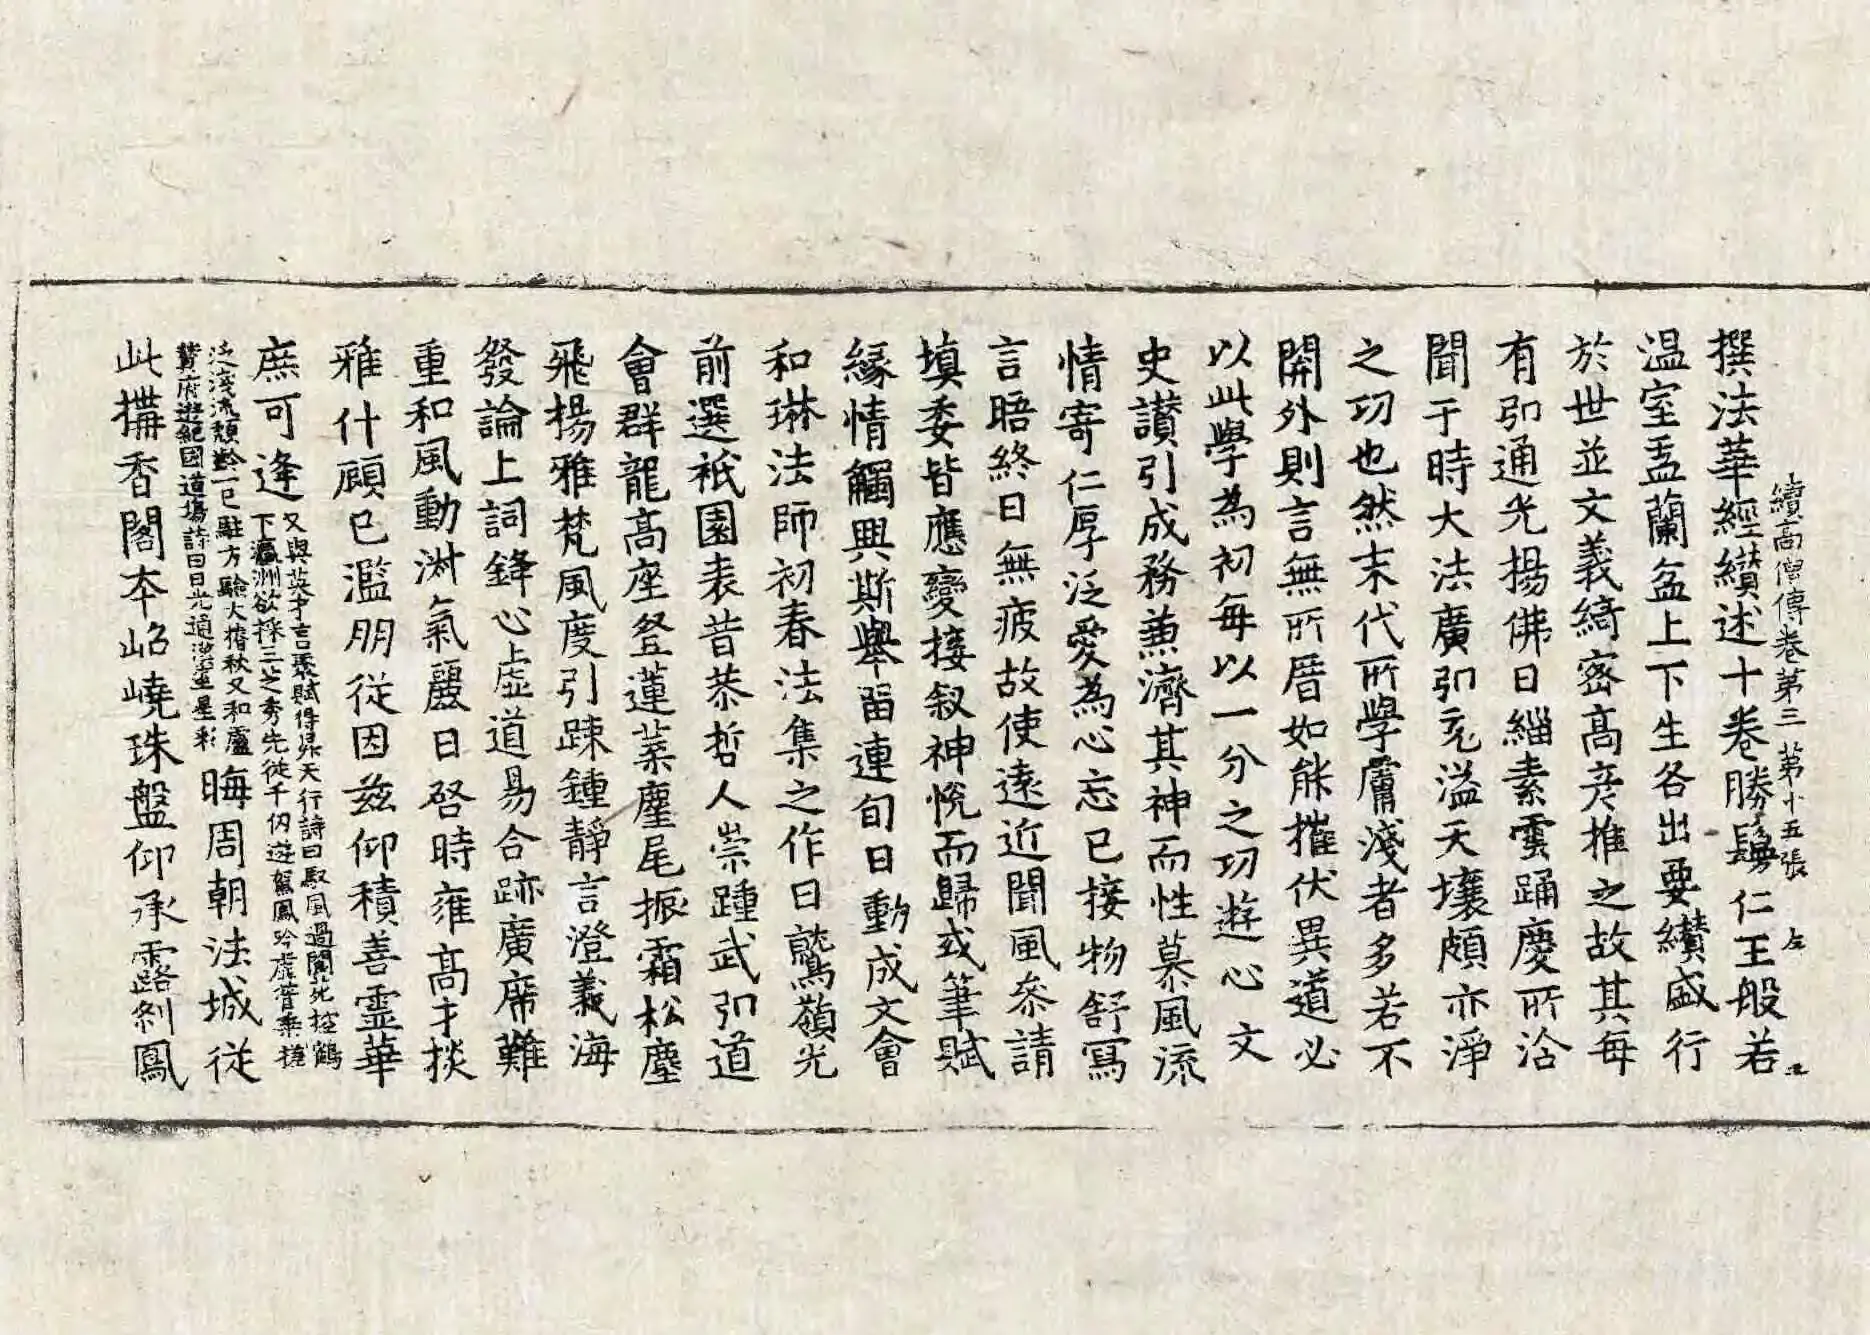 續高僧傳卷第三 第十五張 左
撰法華經纘述十卷勝鬘仁王般若
温室盂蘭盆上下生各出要纘盛行
於世並文義綺密高彦推之故其每
有弘通光揚佛日緇素雲踊慶所洽
聞于時大法廣弘充溢天壤頗亦淨
之功也然末代所學膚淺者多若不
開外則言無所厝如能摧伏異道必
以此學為初每以一分之功遊心文
史讃引成務兼濟其神而性慕風流
情寄仁厚泛愛為心忘已接物舒寫
言晤終日無疲故使遠近聞風叅請
填委皆應變接叙神悅而歸或筆賦
緣情觸興斯舉留連旬日動成文會
和琳法師初春法集之作日鷲嶺光
前選祇園表昔恭哲人崇踵武弘道
會群龍高座登蓮葉麈尾振霜松塵
飛揚雅梵風度引踈鍾靜言澄義海
發論上詞鋒心虛道易合跡廣席難
重和風動淋氣麗日啓時雍高才掞
雅什顧已濫朋從因茲仰積善靈華
庶可逢
又與英才言聚賦得昇天行詩曰馭風過閬苑控鶴
下瀛洲欲採三芝秀先從千仞遊駕鳳吟虛管乘槎
泛淺流頹齡一已駐方驗大椿秋又和盧
贊府遊紀國道場詩曰日光通漢室星彩
晦周朝法城從
此構香閣本岧嶢珠盤仰承露刹鳳